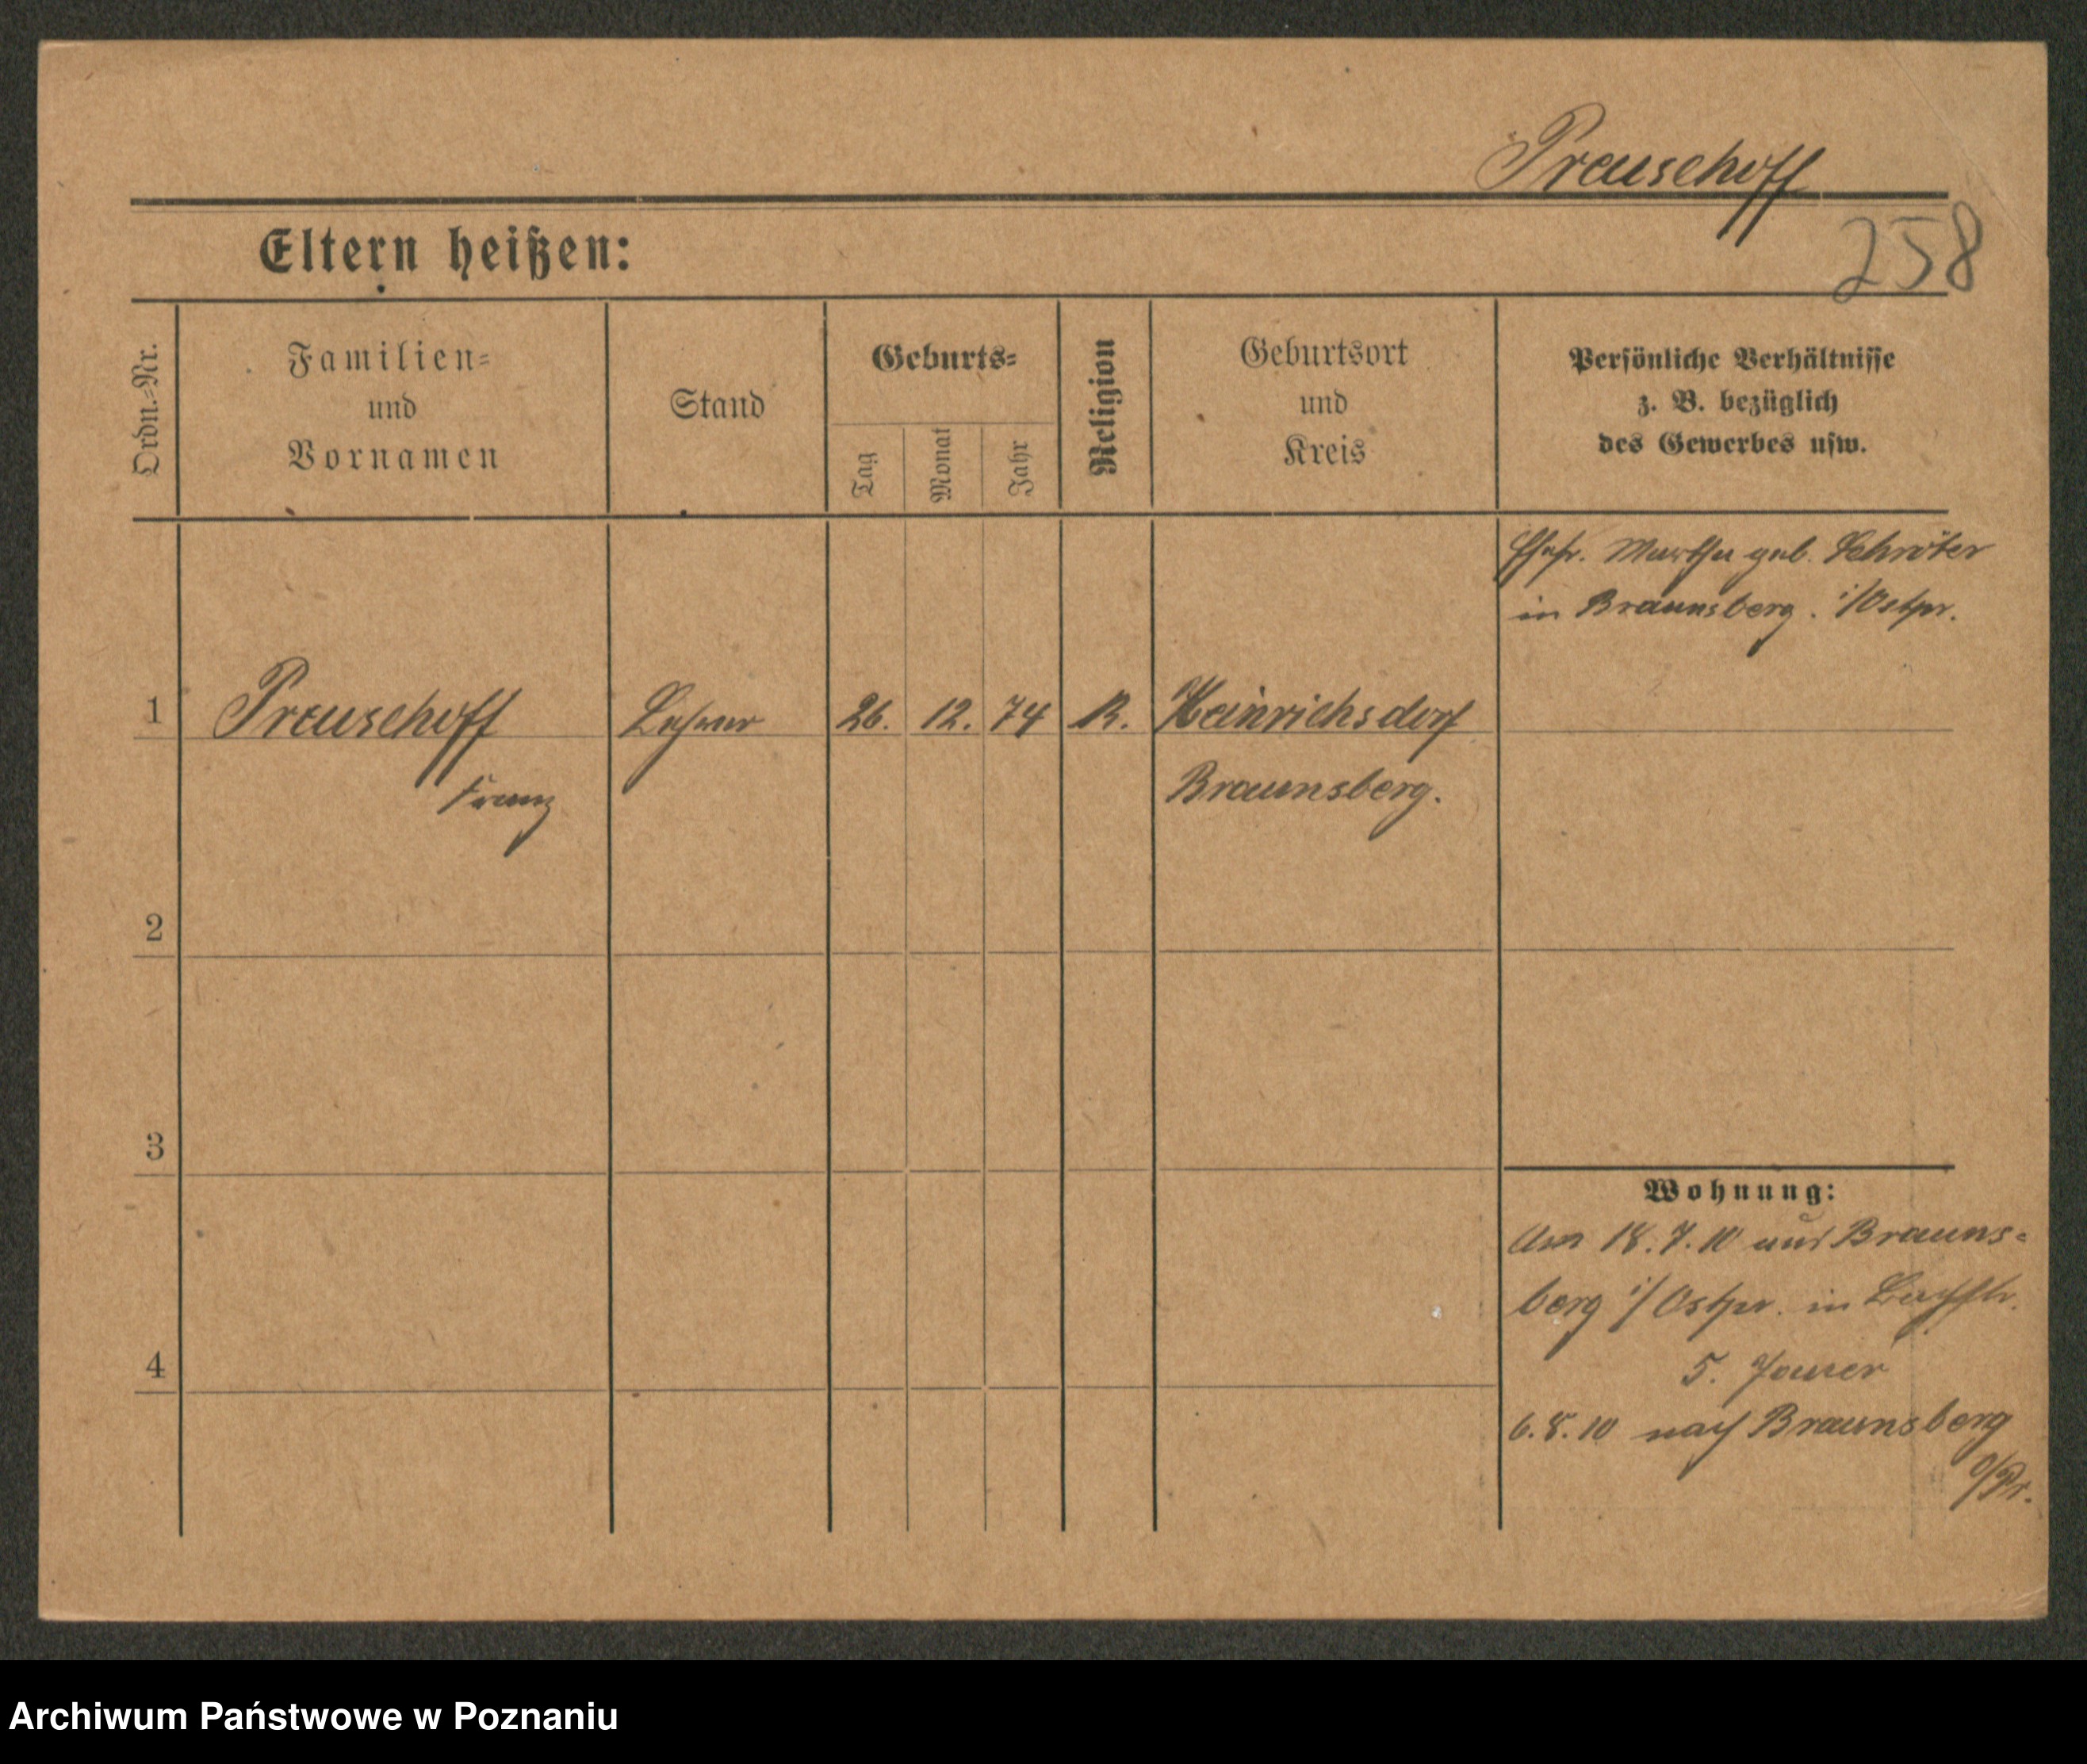 Preuschoff
258
Eltern heißen:
Ordn.=Nr.
Familien=
und
Vornamen
Stand
Geburts=
Tag
Monat
Jahr
Religion
Geburtsort
und
Kreis
Persönliche Verhältnisse
z. B. bezüglich
des Gewerbes usw.
Ehefr. Martha geb. Schröter
in Braunsberg. i/Ostpr.
1
Preuschoff
Franz
Lehrer
26.
12.
74
R.
Heinrichsdorf
Braunsberg.
2
3
4
Wohnung:
Am 18.7.10 aus Brauns=
berg i/Ostpr. in
5.
6.8.10 nach Braunsberg
O/Pr.
Archiwum Państwowe w Poznaniu